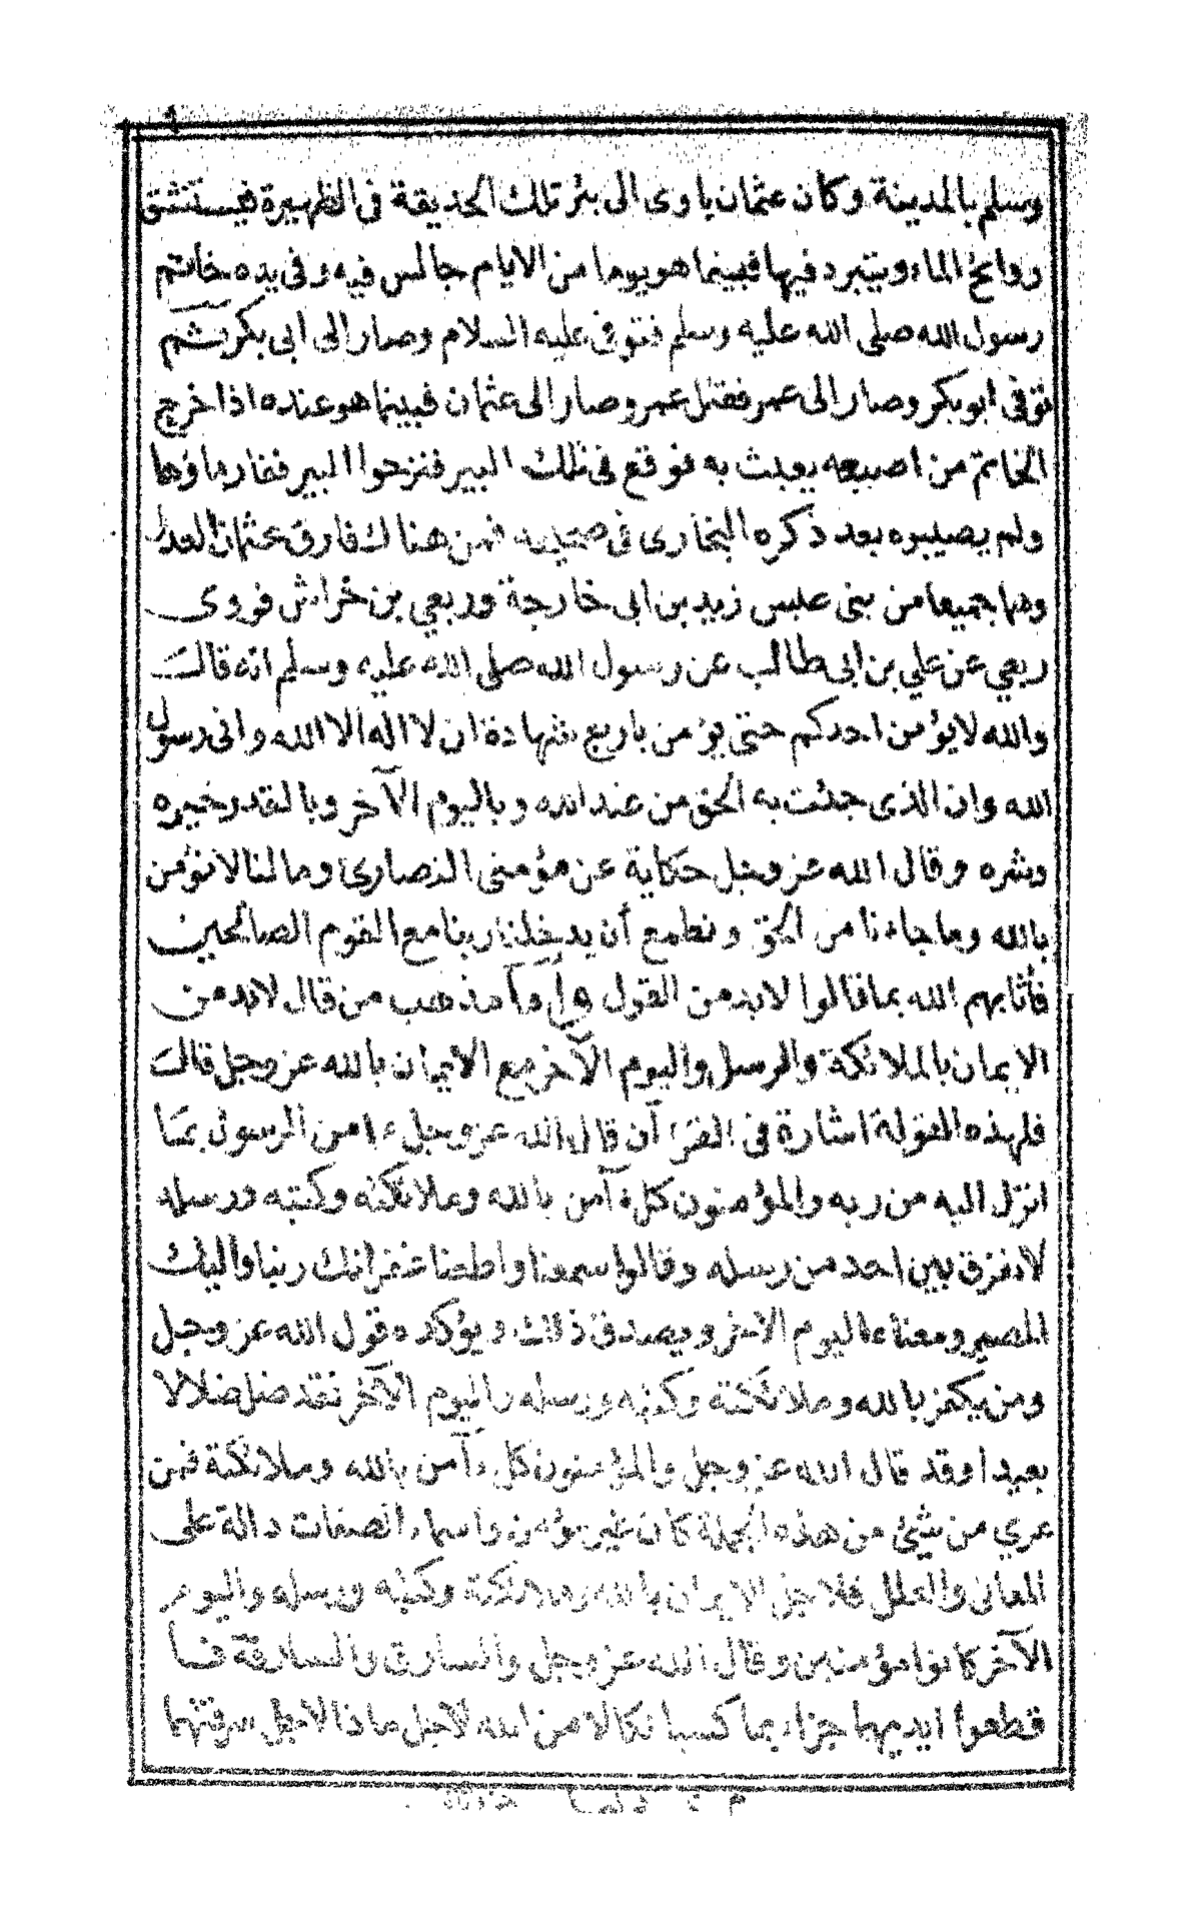 وسلم بالمدينة وكان عثمان ياوى الى بئر تلك الحديقة فى الظهيرة فيستنشق
روائح الماء ويتبرد فيها فبينما هو يوما من الايام جالس فيه وفى يده خاتم
رسول الله صلى الله عليه وسلم فتوفى عليه السلام وصار الى ابى بكر ثم
توفى ابو بكر وصار الى عمر فقتل عمر وصار الى عثمان فبينما هو عنده اذا خرج
الخاتم من اصبعه يعبث به فوقع فى تلك البير فنزحوا البير فغار ماؤها
ولم يصيبوه بعد ذكره البخارى فى صحيحه فمن هناك فارق عثمان العدل
وهما جميعا من بنى عبس زيد بن ابى خارجة وربعي بن خراش فروى
ربعي عن علي بن ابى طالب عن رسول الله صلى الله عليه وسلم انه قال
والله لا يؤمن احدكم حتى يؤمن باربع شهادة ان لا اله الا الله وانى رسول
الله وان الذى جئت به الحق من عند الله وباليوم الآخر وبالقدر خيره
وشره وقال الله عز وجل حكاية عن مؤمنى النصارى وما لنا لا نؤمن
بالله وما جاءنا من الحق ونطمع أن يدخلنا ربنا مع القوم الصالحين
فأثابهم الله بما قالوا لا بد من القول وأما مذهب من قال لا بد من
الايمان بالملائكة والرسل واليوم الآخر مع الايمان بالله عز وجل قال
فلهذه المقولة اشارة فى القرآن قال الله عز وجل ءامن الرسول بما
انزل اليه من ربه والمؤمنون كل آمن بالله وملائكته وكتبه ورسله
لا نفرق بين احد من رسله وقالوا سمعنا واطعنا غفرانك ربنا واليك
المصير ومعناه اليوم الاخر ويصدق ذلك ويؤكده قول الله عز وجل
ومن يكفر بالله وملائكته وكتبه ورسله واليوم الآخر فقد ضل ضلالا
بعيدا وقد قال الله عز وجل والمؤمنون كل آمن بالله وملائكته فمن
عري من شيئ من هذه الجملة كان غير مؤمن واسماء الصفات دالة على
المعانى والعلل فلاجل الايمان بالله وملائكته وكتبه ورسله واليوم
الآخر كانوا مؤمنين وقال الله عز وجل والسارق والسارقة فا
قطعوا ايديهما جزاء بما كسبا نكالا من الله لاجل ماذا لاجل سرقتهما